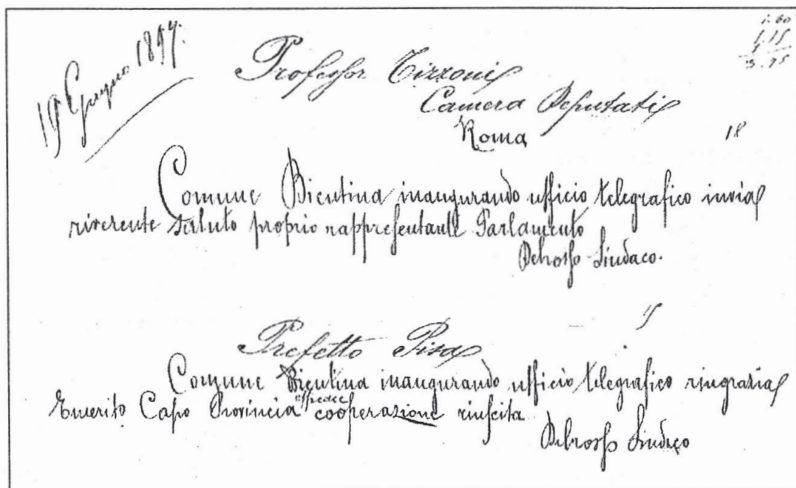 19 Giugno 1897.
1.60
1.15
1
3.75
Professor Tizzoni
Camera Deputati
Roma
18
Comune Bientina inaugurando ufficio telegrafico invia
riverente saluto proprio rappresentante Parlamento
Delrosso Sindaco.
15
Prefetto Pisa
Comune Bientina inaugurando ufficio telegrafico ringrazia
efficace
Emerito Capo Provincia cooperazione riuscita
Delrosso Sindaco